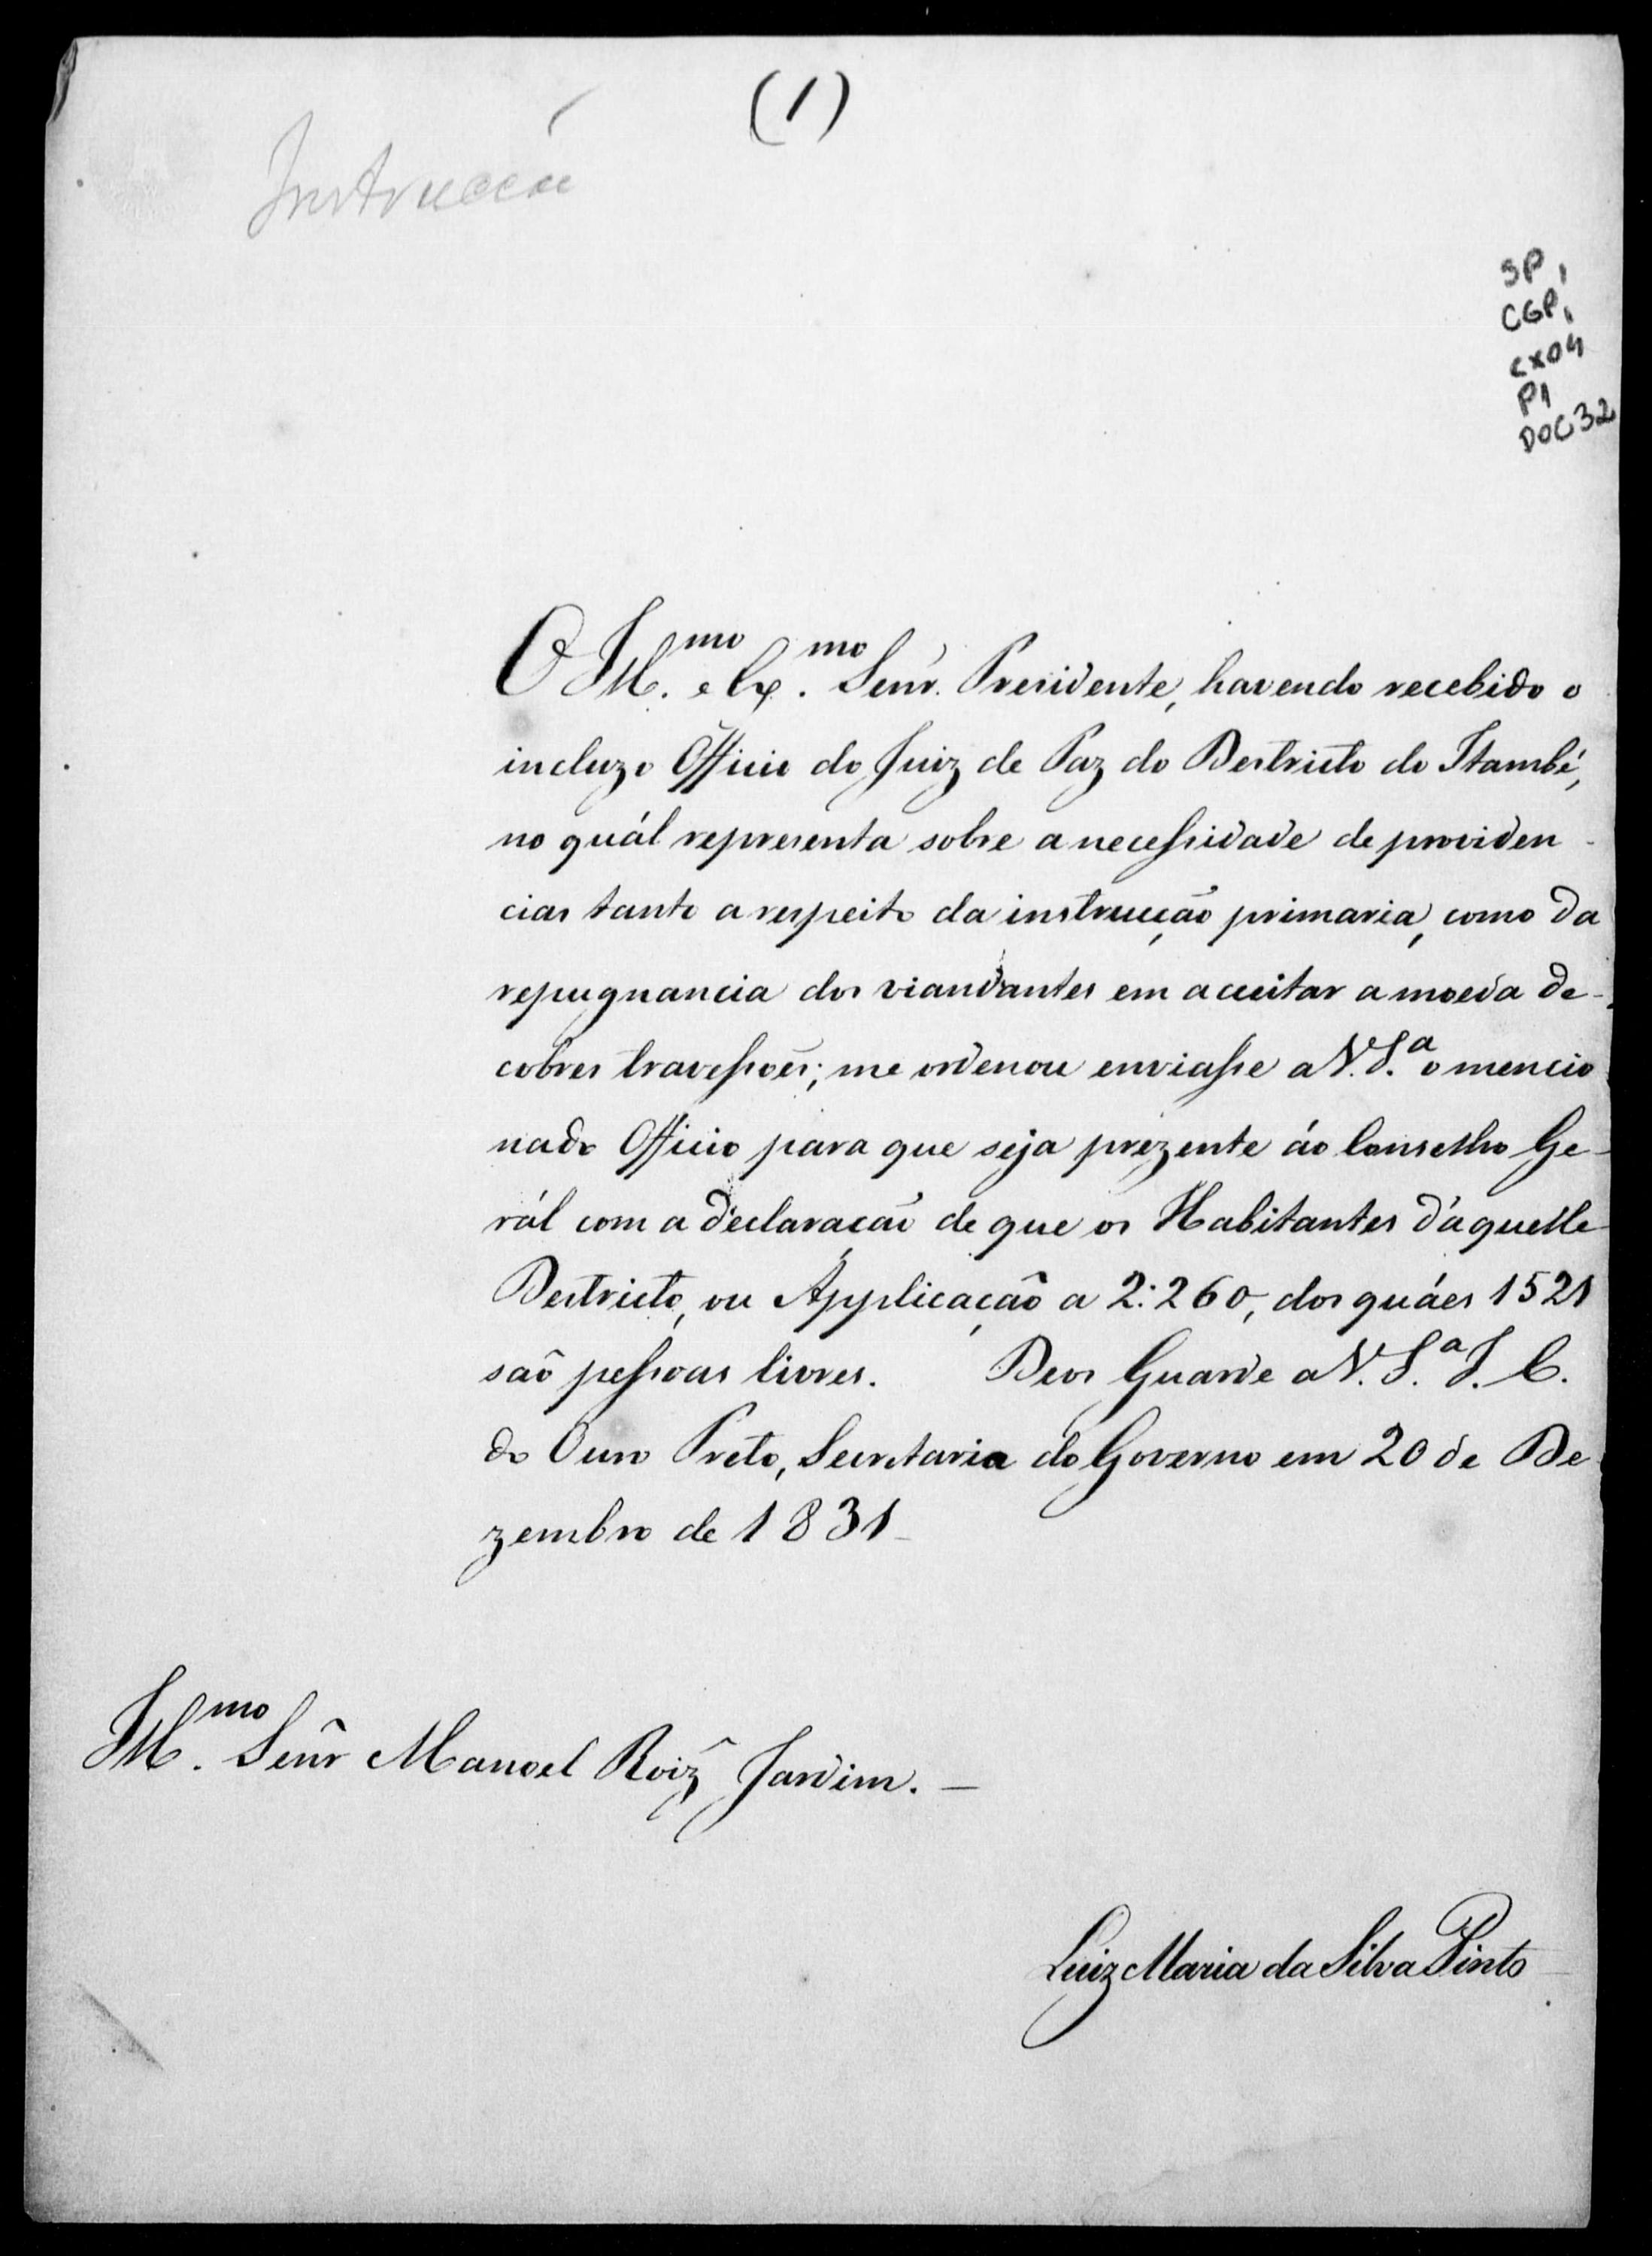 (1)
Instrucção
SP1
CGP1
CX04
P1
DOC32
O Ill.mo e Ex.mo Senr. Prezidente, havendo recebido o
incluzo Officio do Juiz de Paz do Destricto do Itambé,
no quál representa sobre a necessidade de providen-
cias tanto a respeito da instrucção primaria, como da
repugnancia dos viandantes em acceitar a moeda de
cobres travessoes; me ordenou enviasse a V. S.a o mencio
nado Officio para que seja prezente áo Conselho Ge-
rál com a declaração de que os Habitantes d'aquelle
Destricto, ou Applicação a 2:260, dos quáes 1521
saõ pessoas livres. Deos Guarde a V. S.a I. C.
do Ouro Preto, Secretaria do Governo em 20 de De
zembro de 1831
Ill.mo Senr Manoel Roiz Jardim. —
Luiz Maria da Silva Pinto